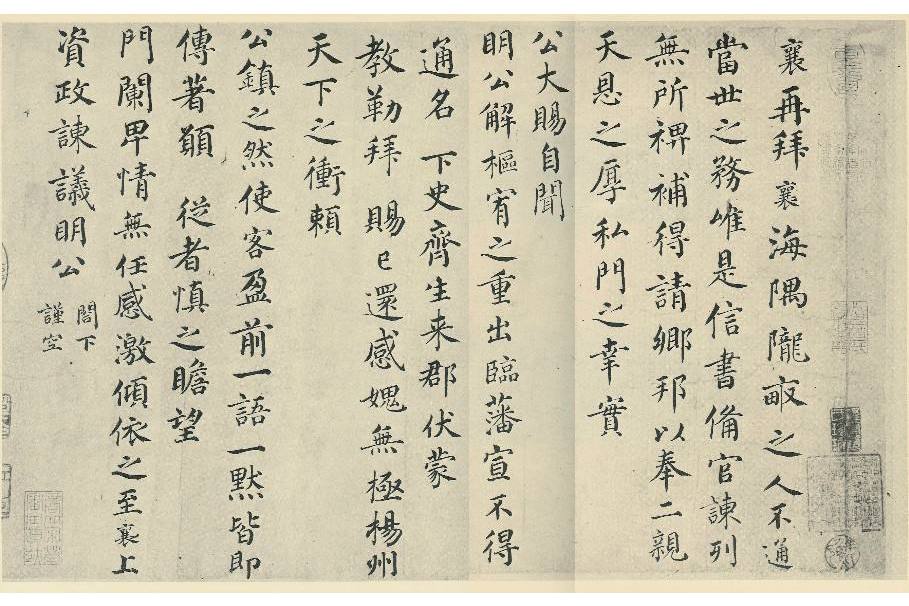 襄再拜襄海隅隴畝之人不通
當世之務唯是信書備官諫列
無所裨補得請鄉邦以奉二親
天恩之厚私門之幸實
公大賜自聞
明公解樞宥之重出臨藩宣不得
通名下史齊生来郡伏蒙
教勒拜賜已還感媿無極楊州
天下之衝頼
公鎮之然使客盈前一語一默皆即
傳著願從者慎之瞻望
門闌卑情無任感激傾依之至襄上
資政諫議明公
閤下
謹空